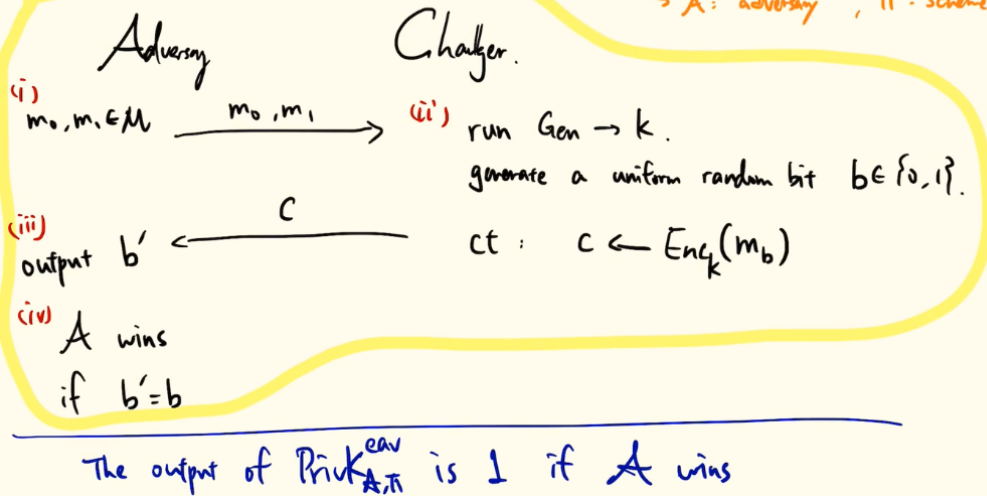 → A: adversary , Π: scheme
Adversary Challger.
(i) m₀, m₁ ∈ M m₀, m₁ (ii) run Gen → k.
generate a uniform random bit b ∈ {0, 1}.
(iii) output b' C ct : c ← Encₖ(m_b)
(iv) A wins
if b' = b
The output of PrivK^eav_A,Π is 1 if A wins